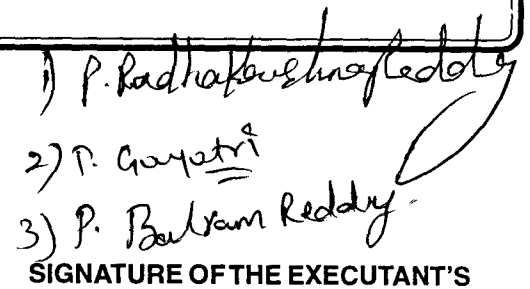 1) P. Radhakrishna Reddy
2) P. Gayatri
3) P. Balram Reddy.
SIGNATURE OF THE EXECUTANT'S